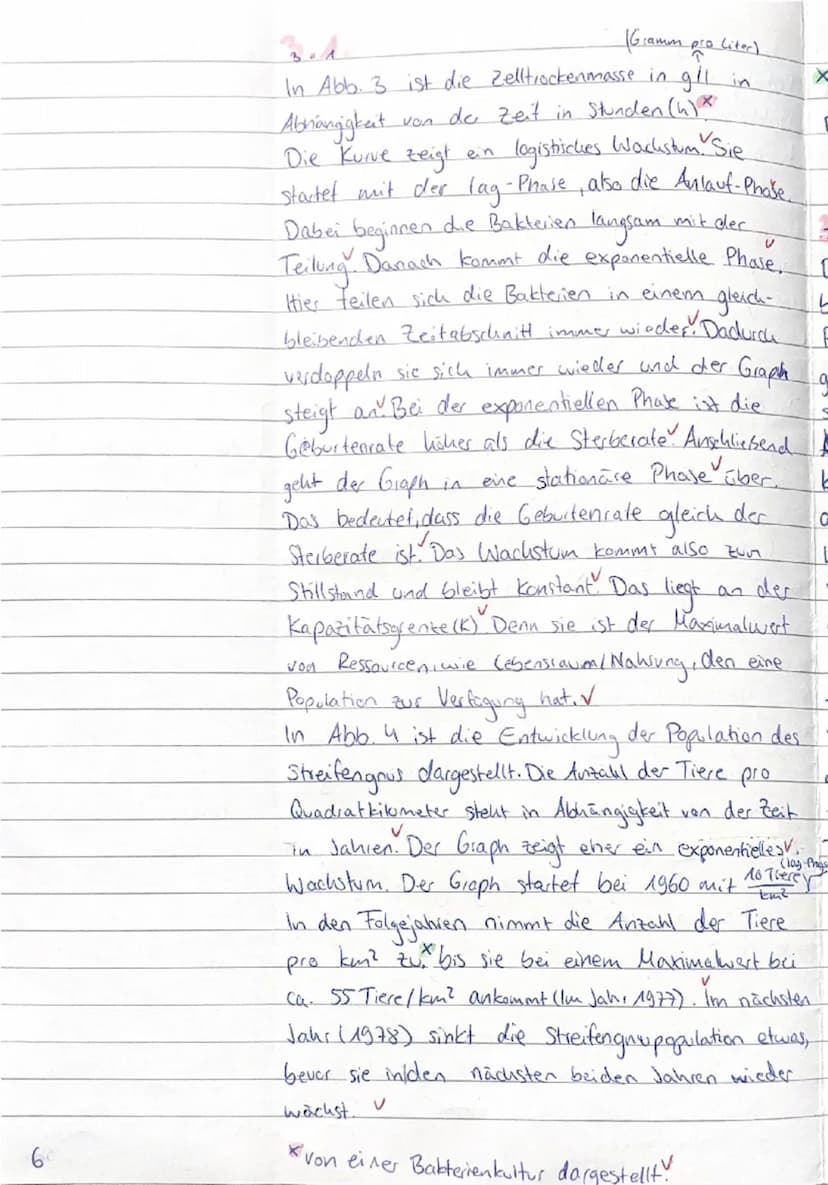 3.1
(Gramm pro Liter)
In Abb. 3 ist die Zelltrockenmasse in g/l in
Abhängigkeit von der Zeit in Stunden (h) x
Die Kurve zeigt ein logistisches Wachstum. Sie
startet mit der lag-Phase, also die Anlauf-Phase.
Dabei beginnen die Bakterien langsam mit der
Teilung. Danach kommt die exponentielle Phase.
Hier teilen sich die Bakterien in einem gleich-
bleibenden Zeitabschnitt immer wieder. Dadurch
verdoppeln sie sich immer wieder und der Graph
steigt an. Bei der exponentiellen Phase ist die
Geburtenrate höher als die Sterberate. Anschließend
geht der Graph in eine stationäre Phase über.
Das bedeutet, dass die Geburtenrate gleich der
Sterberate ist. Das Wachstum kommt also zum
Stillstand und bleibt konstant. Das liegt an der
Kapazitätsgrenze (K). Denn sie ist der Maximalwert
von Ressourcen, wie Lebensraum/Nahrung, den eine
Population zur Verfügung hat.
In Abb. 4 ist die Entwicklung der Population des
Streifengnus dargestellt. Die Anzahl der Tiere pro
Quadratkilometer steht in Abhängigkeit von der Zeit
in Jahren. Der Graph zeigt eher ein exponentielles
Wachstum. Der Graph startet bei 1960 mit 10 Tiere/km² (lag-Phase
In den Folgejahren nimmt die Anzahl der Tiere
pro km² zu, x bis sie bei einem Maximalwert bei
ca. 55 Tiere/km² ankommt (Im Jahr 1977). Im nächsten
Jahr (1978) sinkt die Streifengnupopulation etwas,
bevor sie in/den nächsten beiden Jahren wieder
wächst.
6
x von einer Bakterienkultur dargestellt.